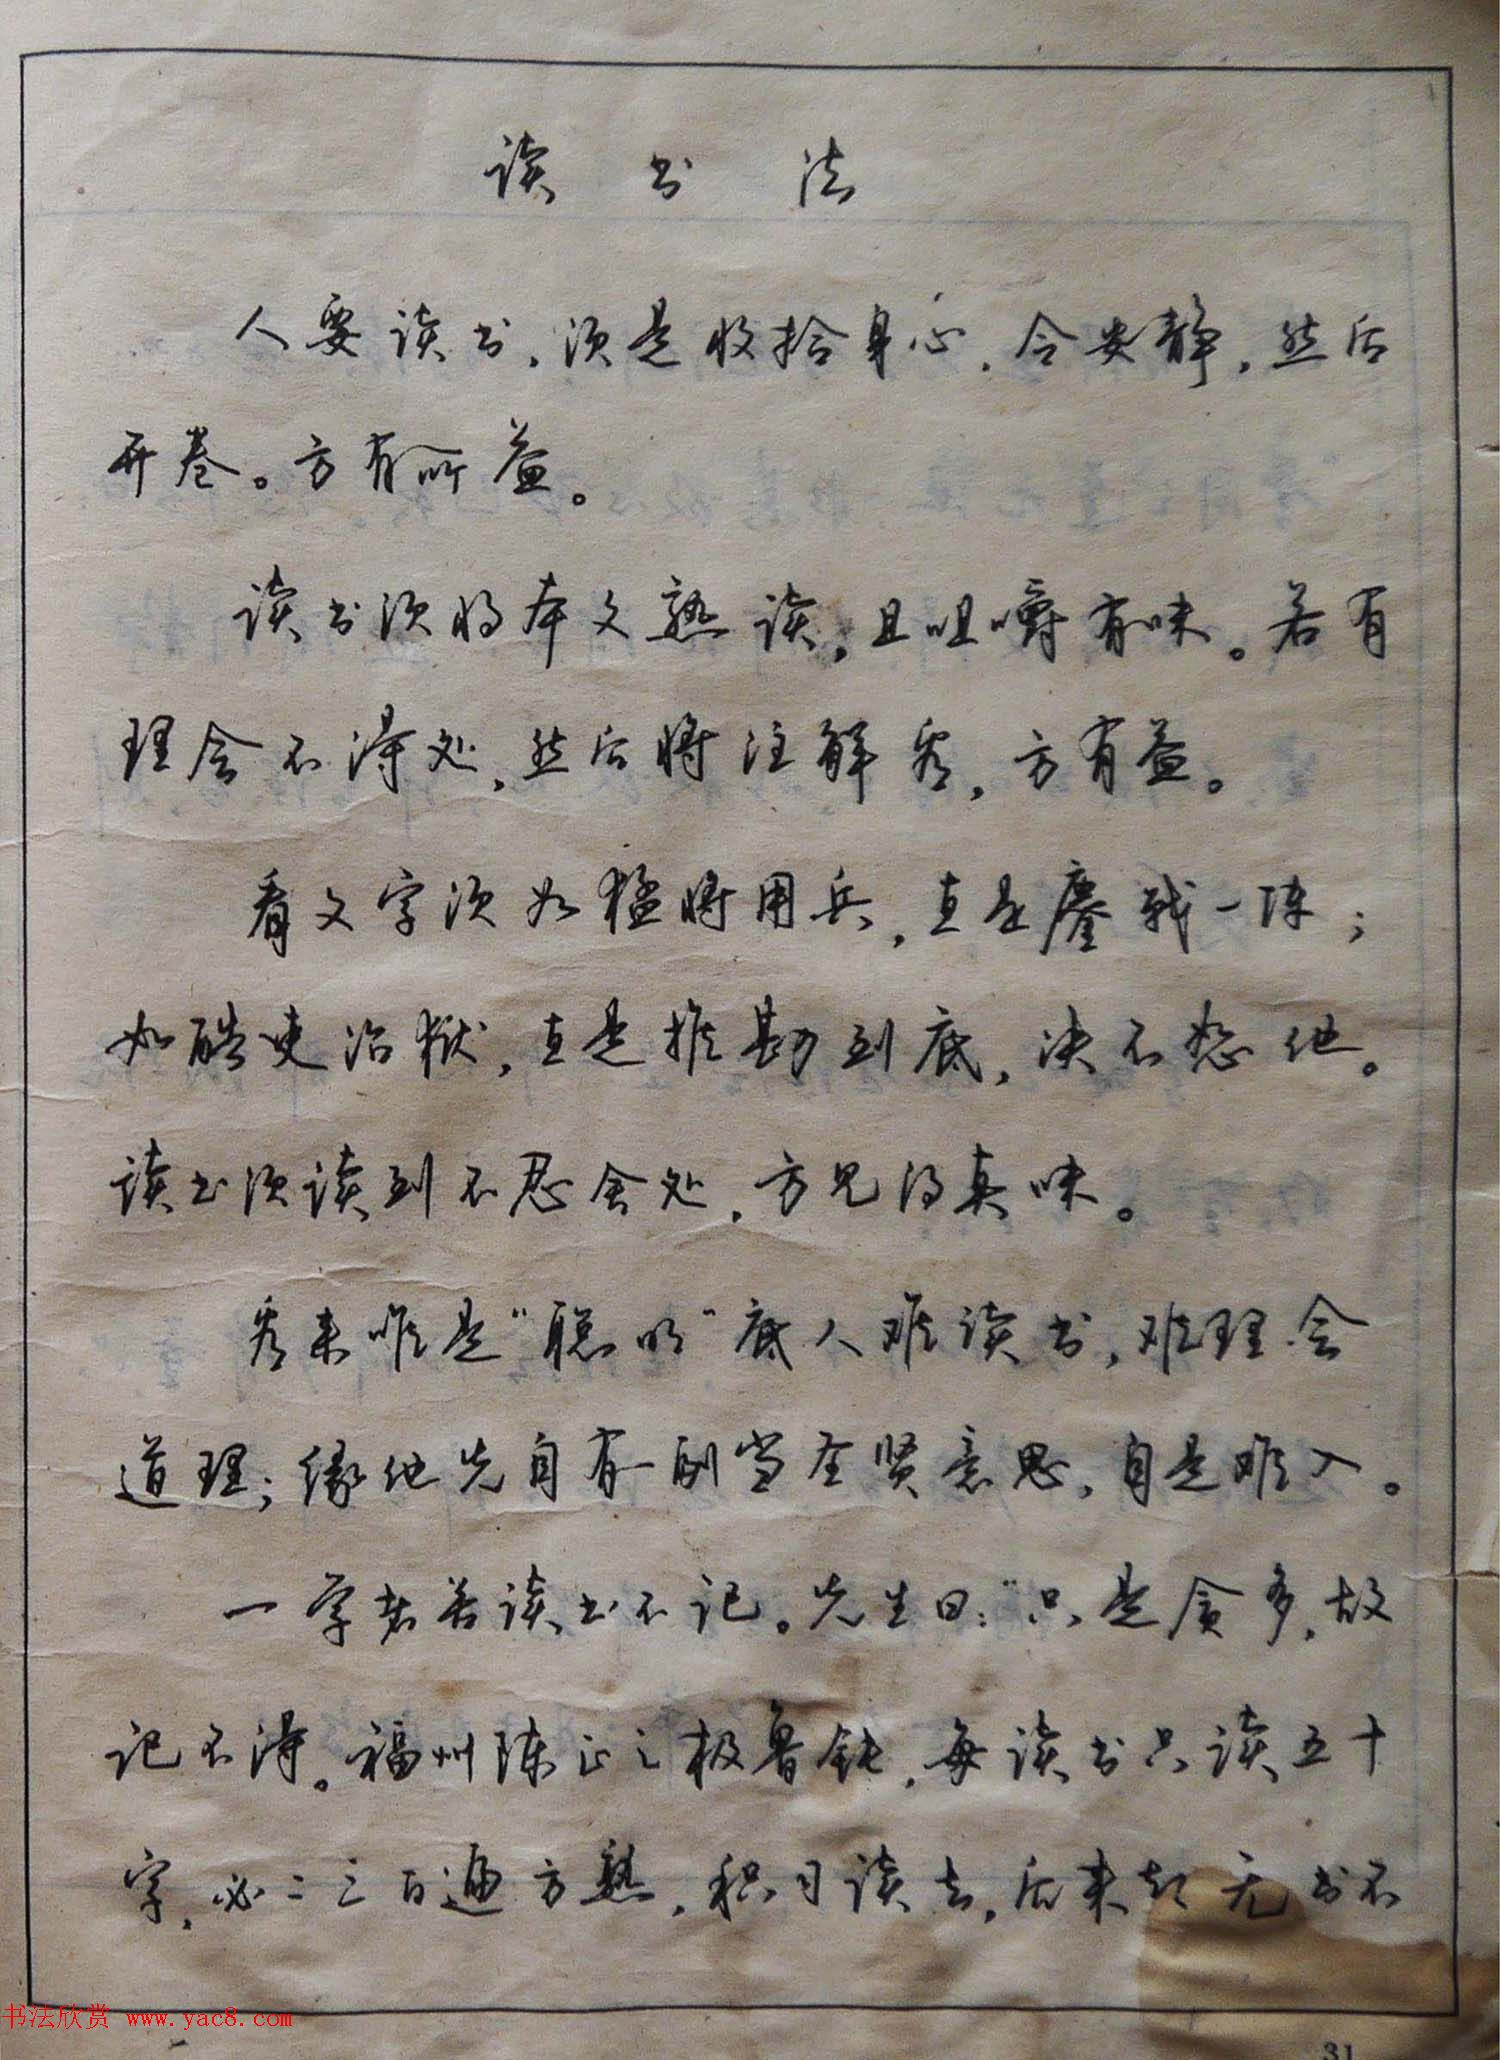 读书法
人要读书，须是收拾身心，令安静，然后
开卷。方有所益。
读书须将本文熟读，且咀嚼有味。若有
理会不得处，然后将注解看，方有益。
看文字须如猛将用兵，直是鏖战一阵；
如酷吏治狱，直是推勘到底，决不恕他。
读书须读到不忍舍处，方见得真味。
看来唯是“聪明”底人难读书，难理会
道理；缘他先自有一副当圣贤意思，自是难入。
一学者苦读书不记。先生曰：“只是贪多，故
记不得。福州陈正之极鲁钝，每读书只读五十
字，必二三百遍方熟，积习读去，后来却无书不
书法欣赏 www.yac8.com
31